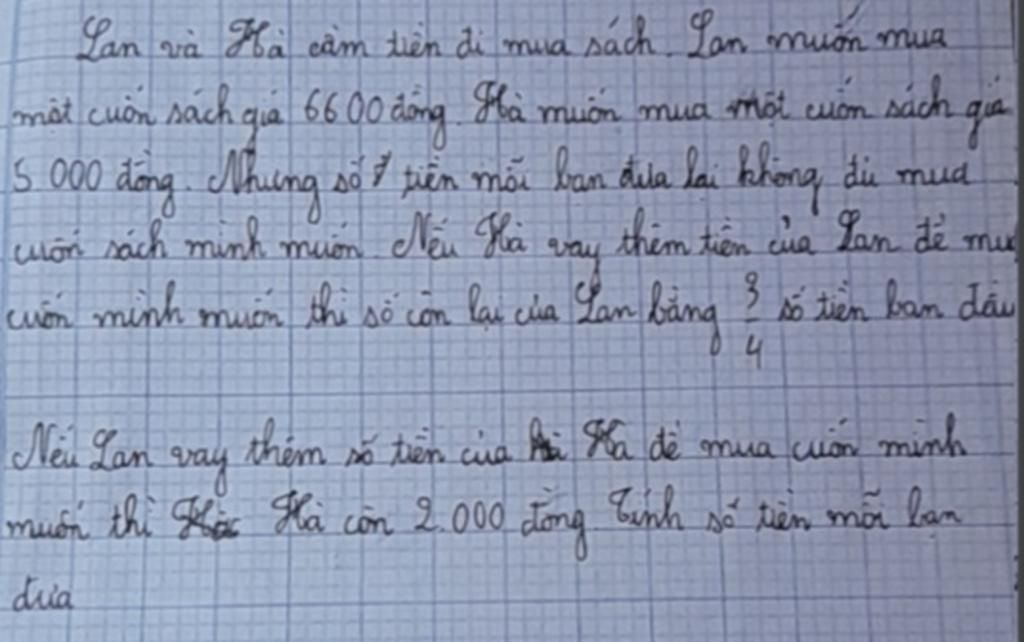 Lan và Hà cầm tiền đi mua sách. Lan muốn mua
một cuốn sách giá 6600 đồng. Hà muốn mua một cuốn sách giá
5 000 đồng. Nhưng số tiền mỗi bạn đưa lại không đủ mua
cuốn sách mình muốn. Nếu Hà vay thêm tiền của Lan để mua
cuốn mình muốn thì số còn lại của Lan bằng 3/4 số tiền ban đầu
Nếu Lan vay thêm số tiền của Hà để mua cuốn mình
muốn thì Hà còn 2.000 đồng Tính số tiền mỗi bạn
đưa